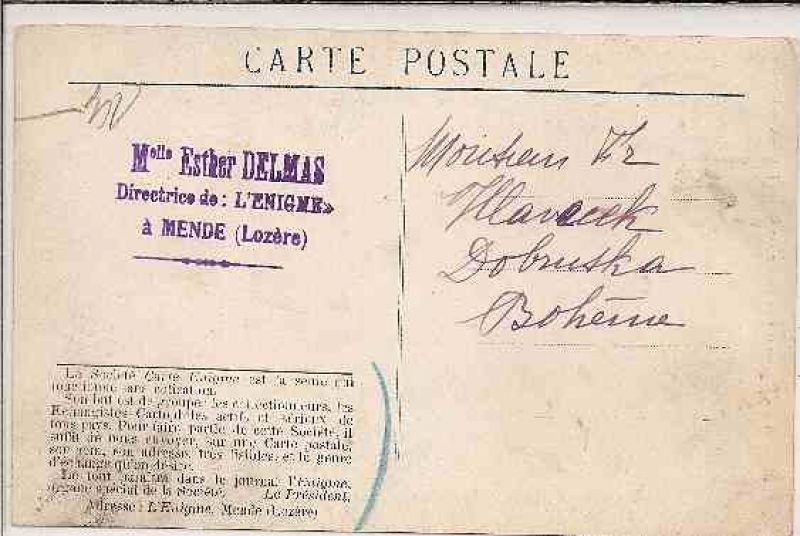 CARTE POSTALE
Melle Esther DELMAS
Directrice de: L'ENIGME»
à MENDE (Lozère)
Monsieur Fr
Hlavacek
Dobruska
Bohême
La Société Carte Enigme est la seule qui
fonctionne sans cotisation.
Son but est de grouper les collectionneurs, les
Echangistes Cartophiles actifs et sérieux de
tous pays. Pour faire partie de cette Société, il
suffit de nous envoyer, sur une Carte postale,
son nom, son adresse, très lisibles, et le genre
d'échange qu'on désire.
Le tout paraîtra dans le journal l'Enigme,
organe spécial de la Société. Le Président,
Adresse: L'Enigme, Mende (Lozère)